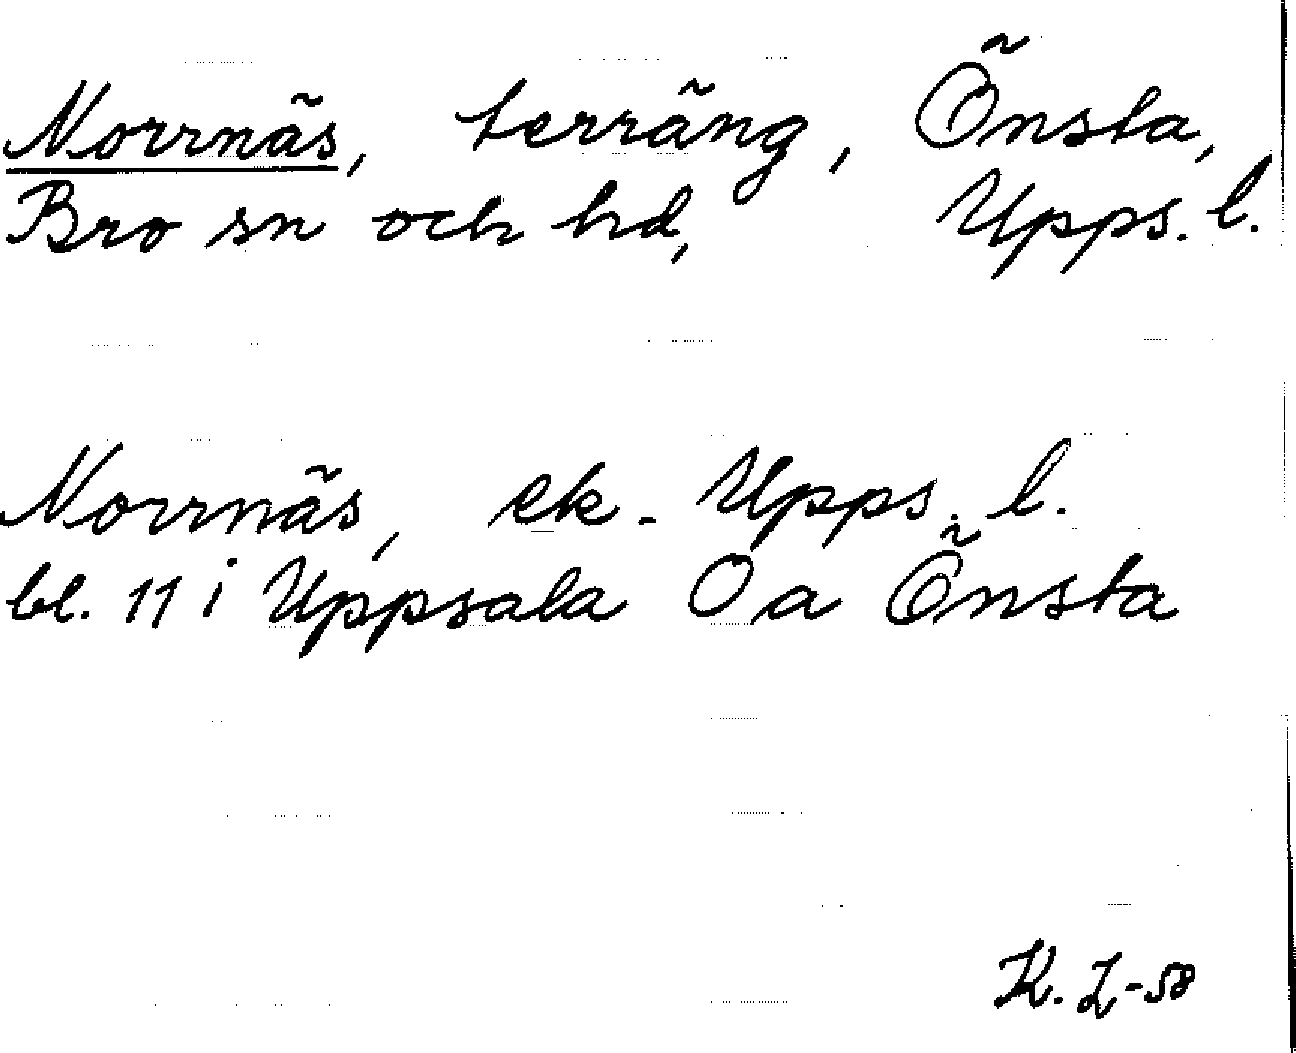 Norrnäs, terräng, Önsta,
Bro sn och hd, Upps. l.
Norrnäs, ek. Upps. l.
bl. 11 i Uppsala Öa Önsta
K. Z-58